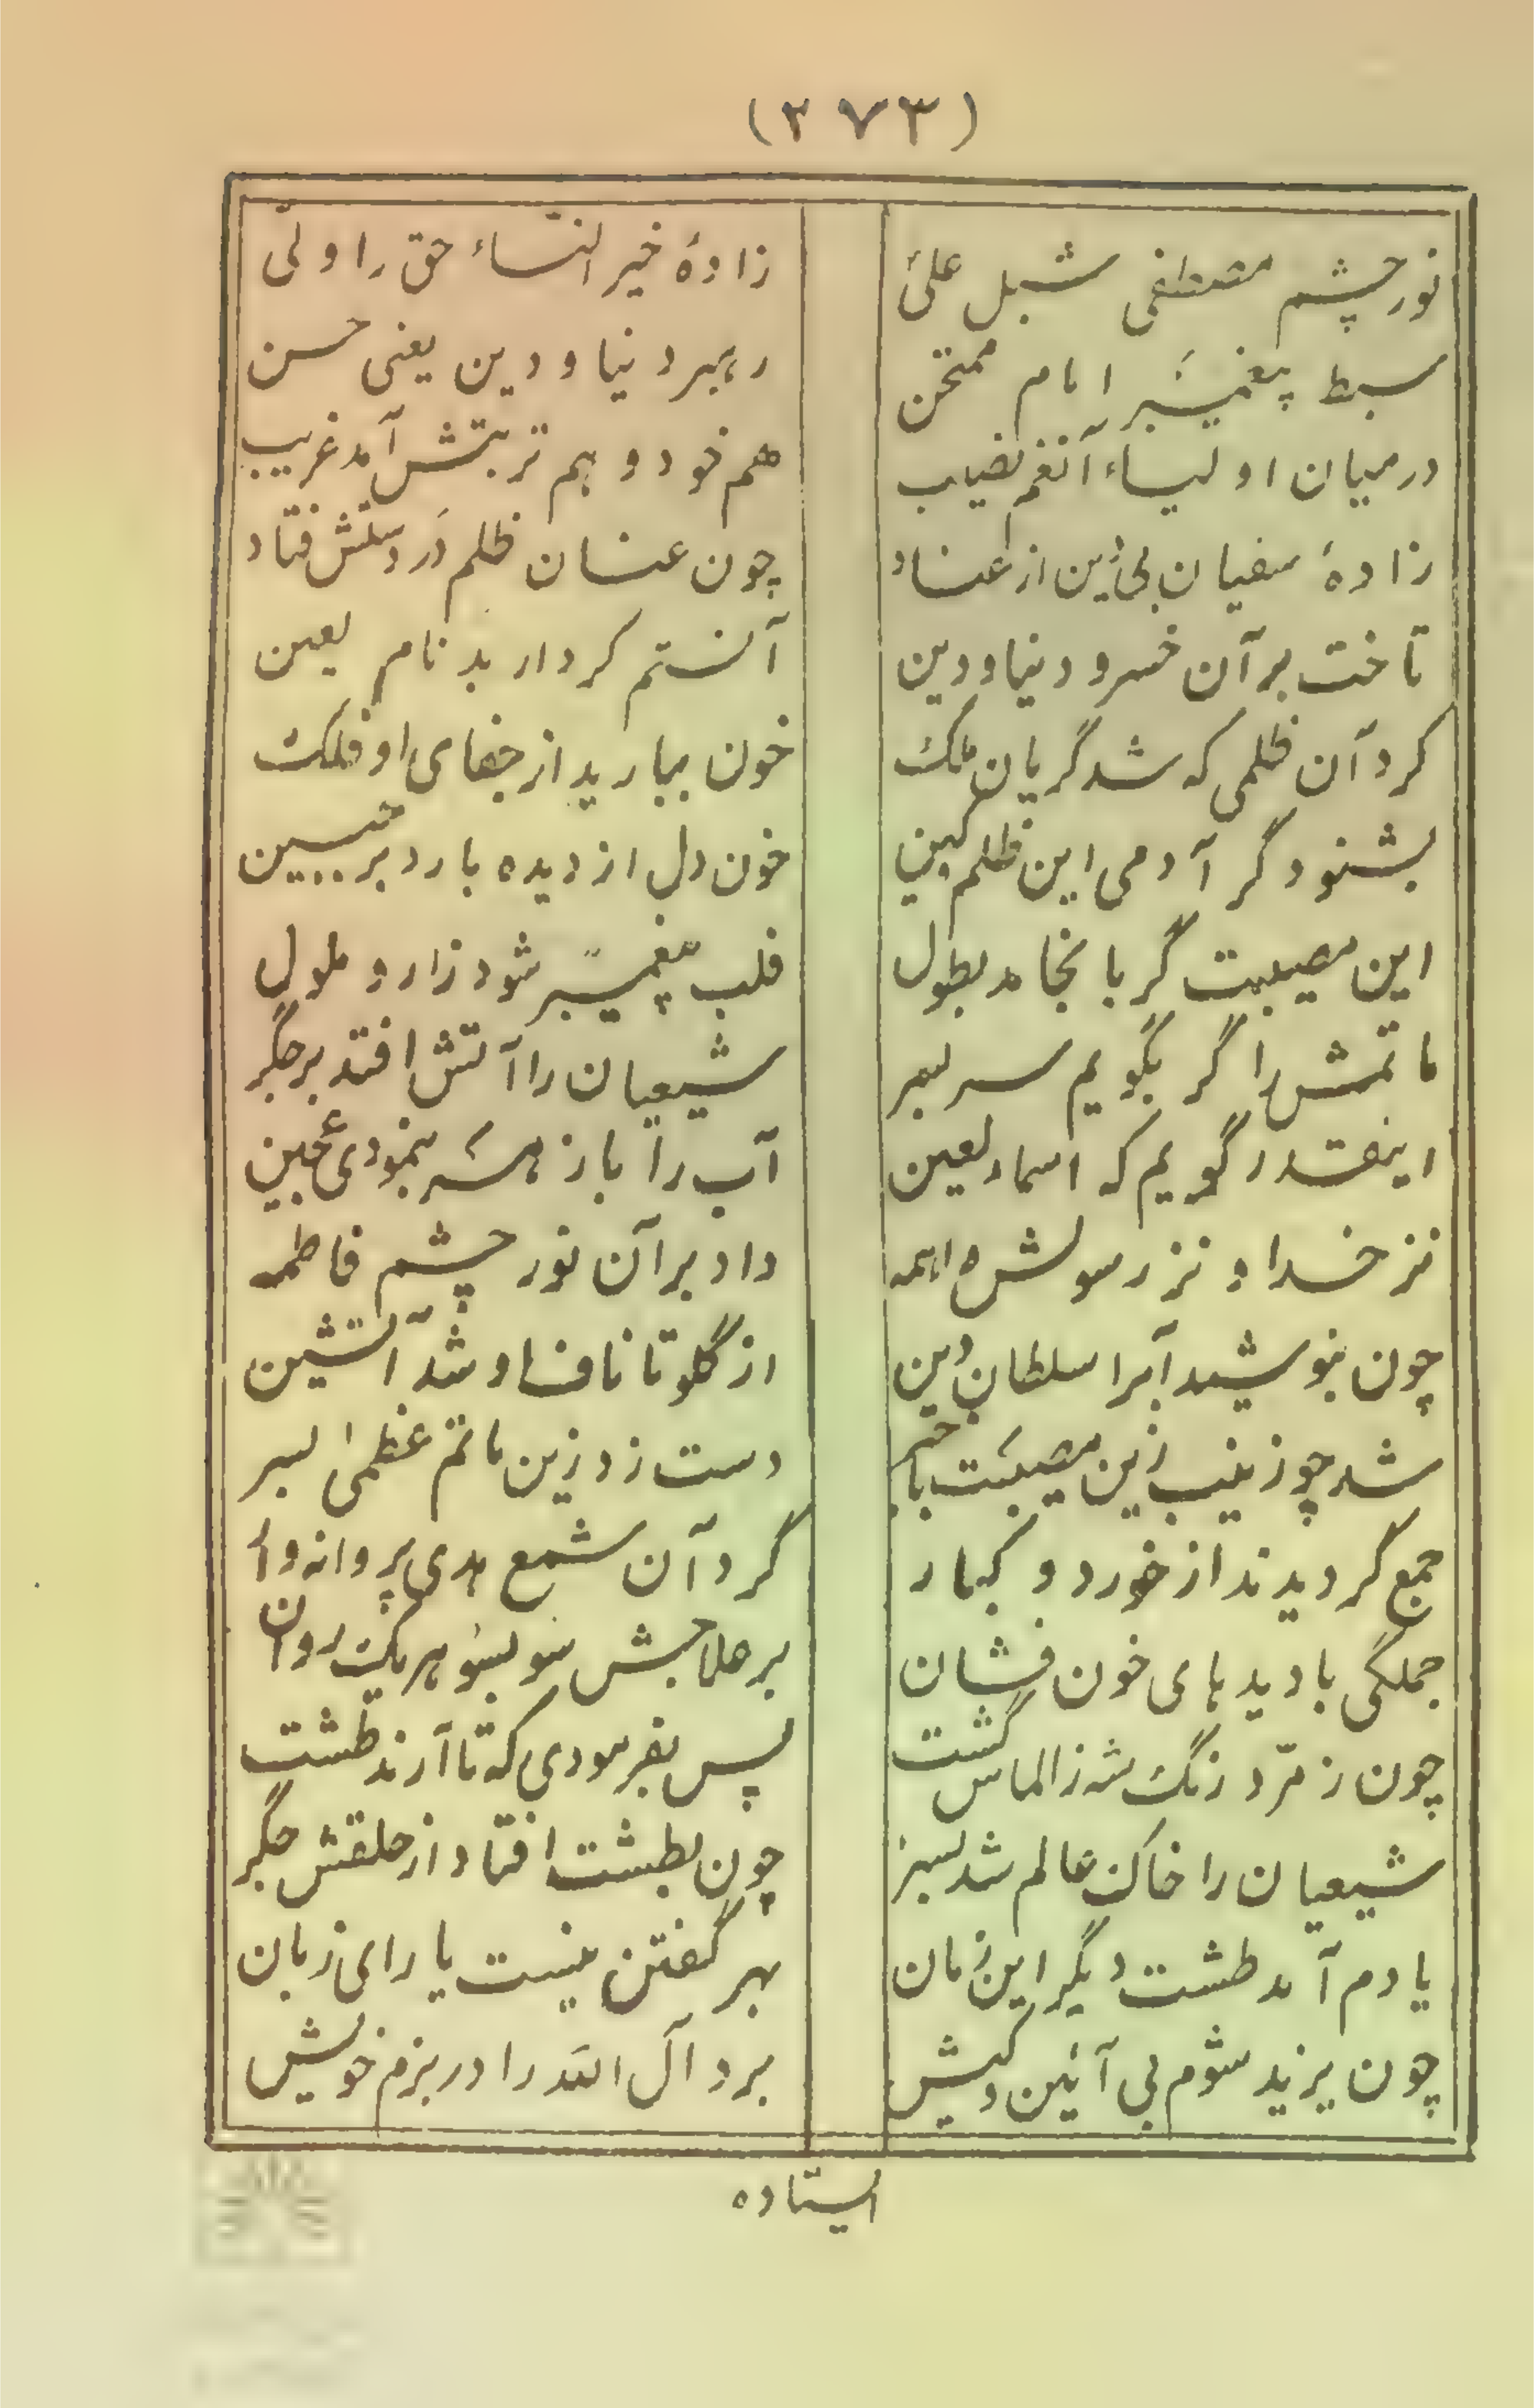 (۲۷۳)
نور چشم مصطفی شبل علی زادهٔ خیر النّساء حق را ولّی
سبط پیغمبر امام ممتحن رهبر دنیا و دین یعنی حسن
در میان اولیاء آنغم نصیب هم خود و هم تربتش آمد غریب
زادهٔ سفیان بی دین از عناد چون عنان ظلم در دستش فتاد
تاخت بر آن خسرو دنیا و دین آنستم کردار بد نام لعین
کرد آن ظلمی که شد گریان ملک خون ببارید از جفای او فلک
بشنود گر آدمی این ظلم کین خون دل از دیده بارد بر جبین
این مصیبت گر بانجامد بطول قلب پیغمبر شود زار و ملول
ماتمش را گر بگویم سر بسر شیعیان را آتش افتد بر جگر
اینقدر گویم که اسماء لعین آب را با زهر بنمودی عجین
نز خدا و نز رسولش واهمه داد بر آن نور چشم فاطمه
چون بنوشید آبرا سلطان دین از گلو تا ناف او شد آتشین
شد چو زینب زین مصیبت با خبر دست زد زین ماتم عظمیٰ بسر
جمع گردیدند از خورد و کبار گرد آن شمع هدی پروانه وار
جملگی با دیدهای خون فشان بر علاجش سو بسو هریک روان
چون زمرّد رنگ شه ز الماس گشت پس بفرمودی که تا آرند طشت
شیعیان را خاک عالم شد بسر چون بطشت افتاد از حلقش جگر
یادم آمد طشت دیگر این زمان بهر گفتن نیست یارای زبان
چون یزید شوم بی آئین و کیش برد آل الله را در بزم خویش
ایستاده